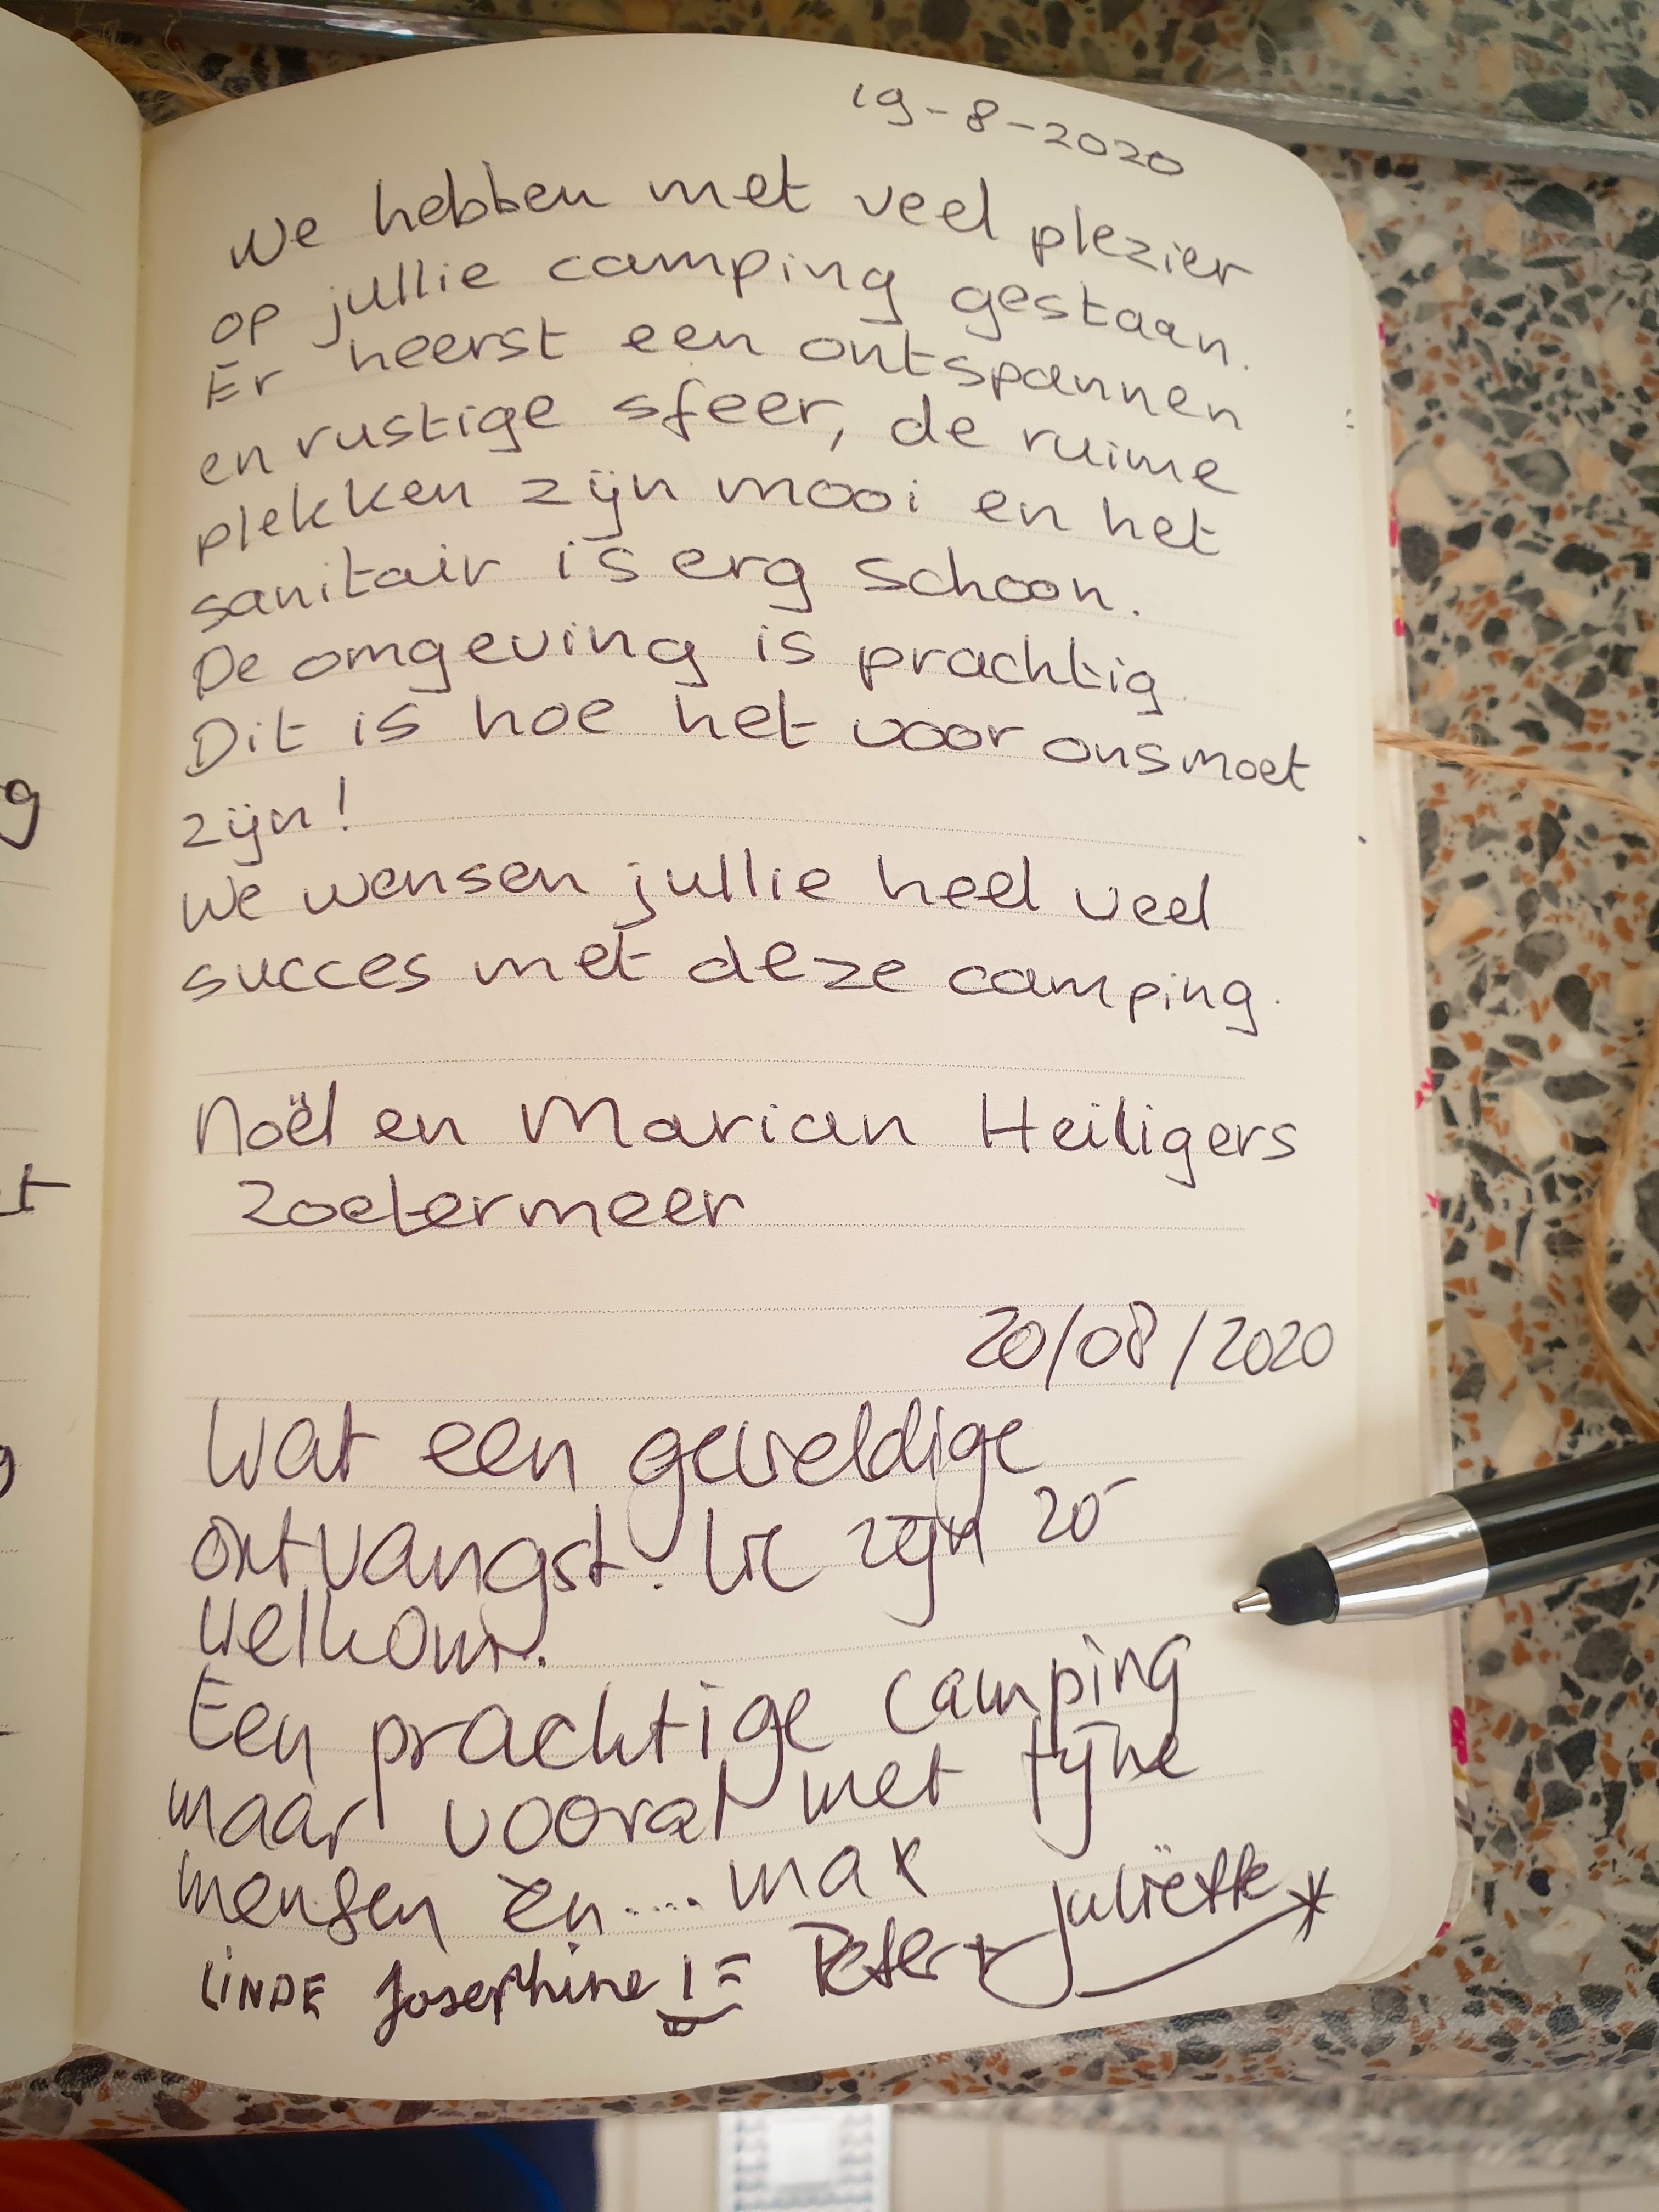 19-8-2020
We hebben met veel plezier
op jullie camping gestaan.
Er heerst een ontspannen
en rustige sfeer, de ruime
plekken zijn mooi en het
sanitair is erg schoon.
De omgeving is prachtig.
Dit is hoe het voor ons moet
zijn!
We wensen jullie heel veel
succes met deze camping.
Noël en Marian Heiligers
Zoetermeer
20/08/2020
Wat een geweldige
ontvangst. We zijn zo
welkom.
Een prachtige camping
maar vooral met fijne
mensen en.... max
LINDE Josephine Peter + Juliëtte
g
t